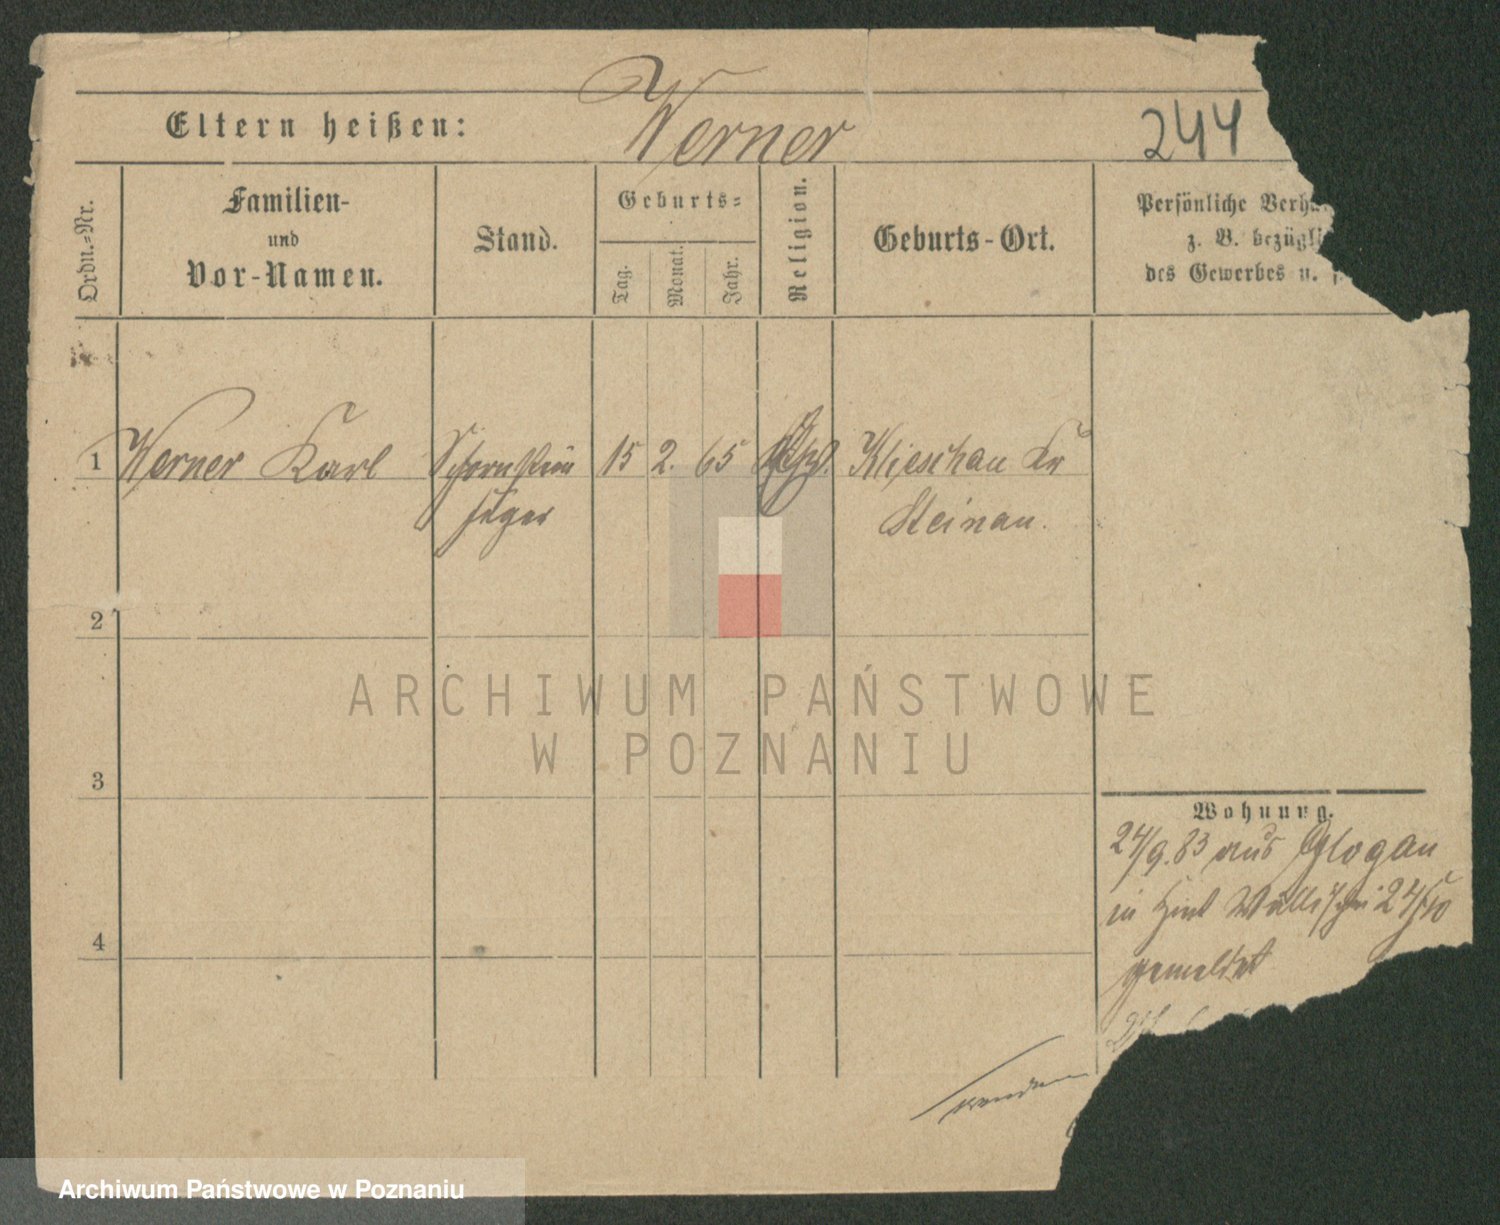 Werner
Eltern heißen:
244
Ordn.-Nr.
Familien-
und
Vor-Namen.
Stand.
Geburts-
Tag.
Monat.
Jahr.
Religion.
Geburts-Ort.
Persönliche
z. B.
des Gewerbes u.
1 Werner Karl Schornstein 15 2. 65 Klieschau Kr
feger Steinau.
2
3
4
Wohnung.
24/9. 83 aus Glogau
in 24/
gemeldet
wenden
ARCHIWUM PAŃSTWOWE
W POZNANIU
Archiwum Państwowe w Poznaniu